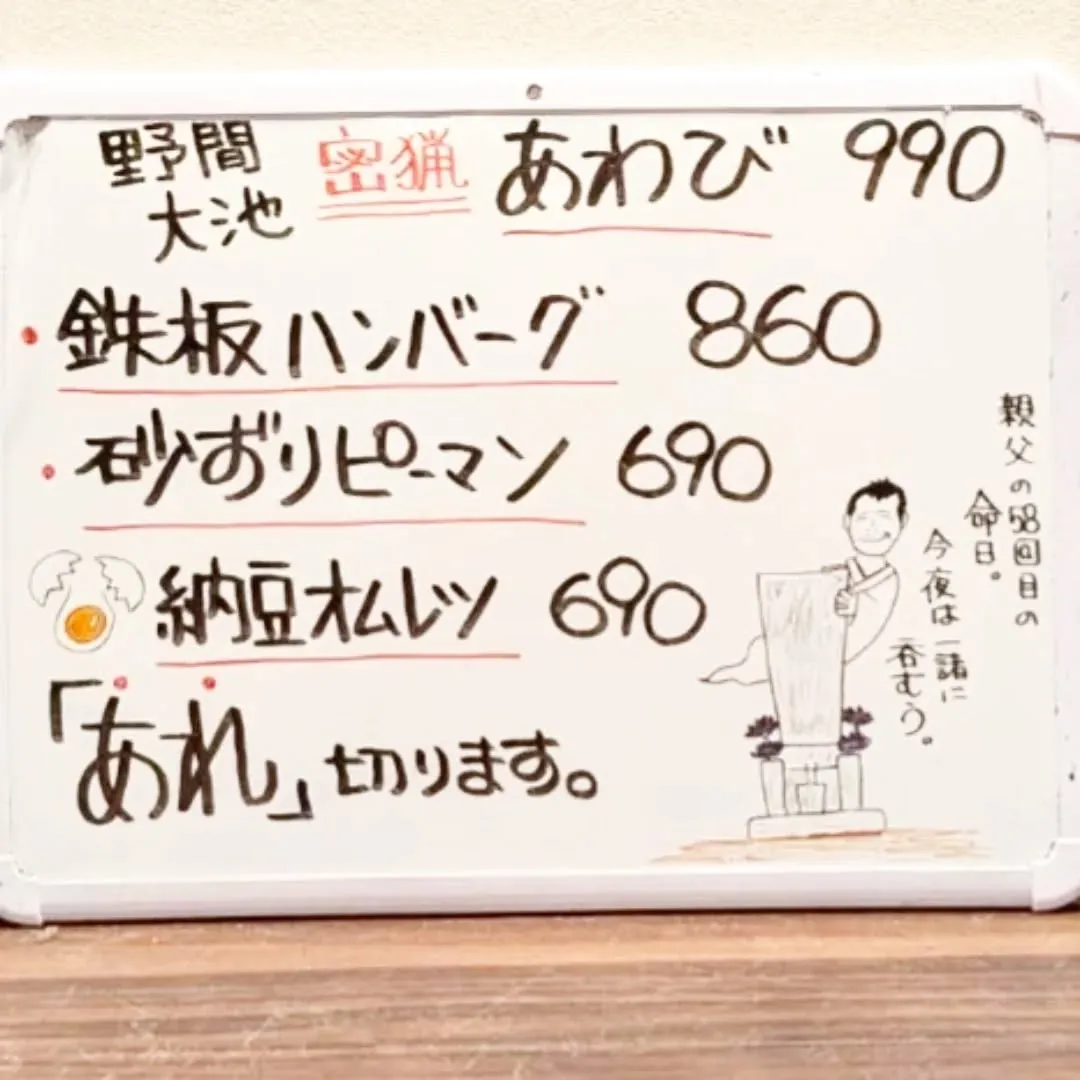 野間
大池
密猟 あわび 990
・鉄板ハンバーグ 860
・砂ずりピーマン 690
納豆オムレツ 690
「あれ」切ります。
親父の58回目の
命日。
今夜は一諸に
呑もう。